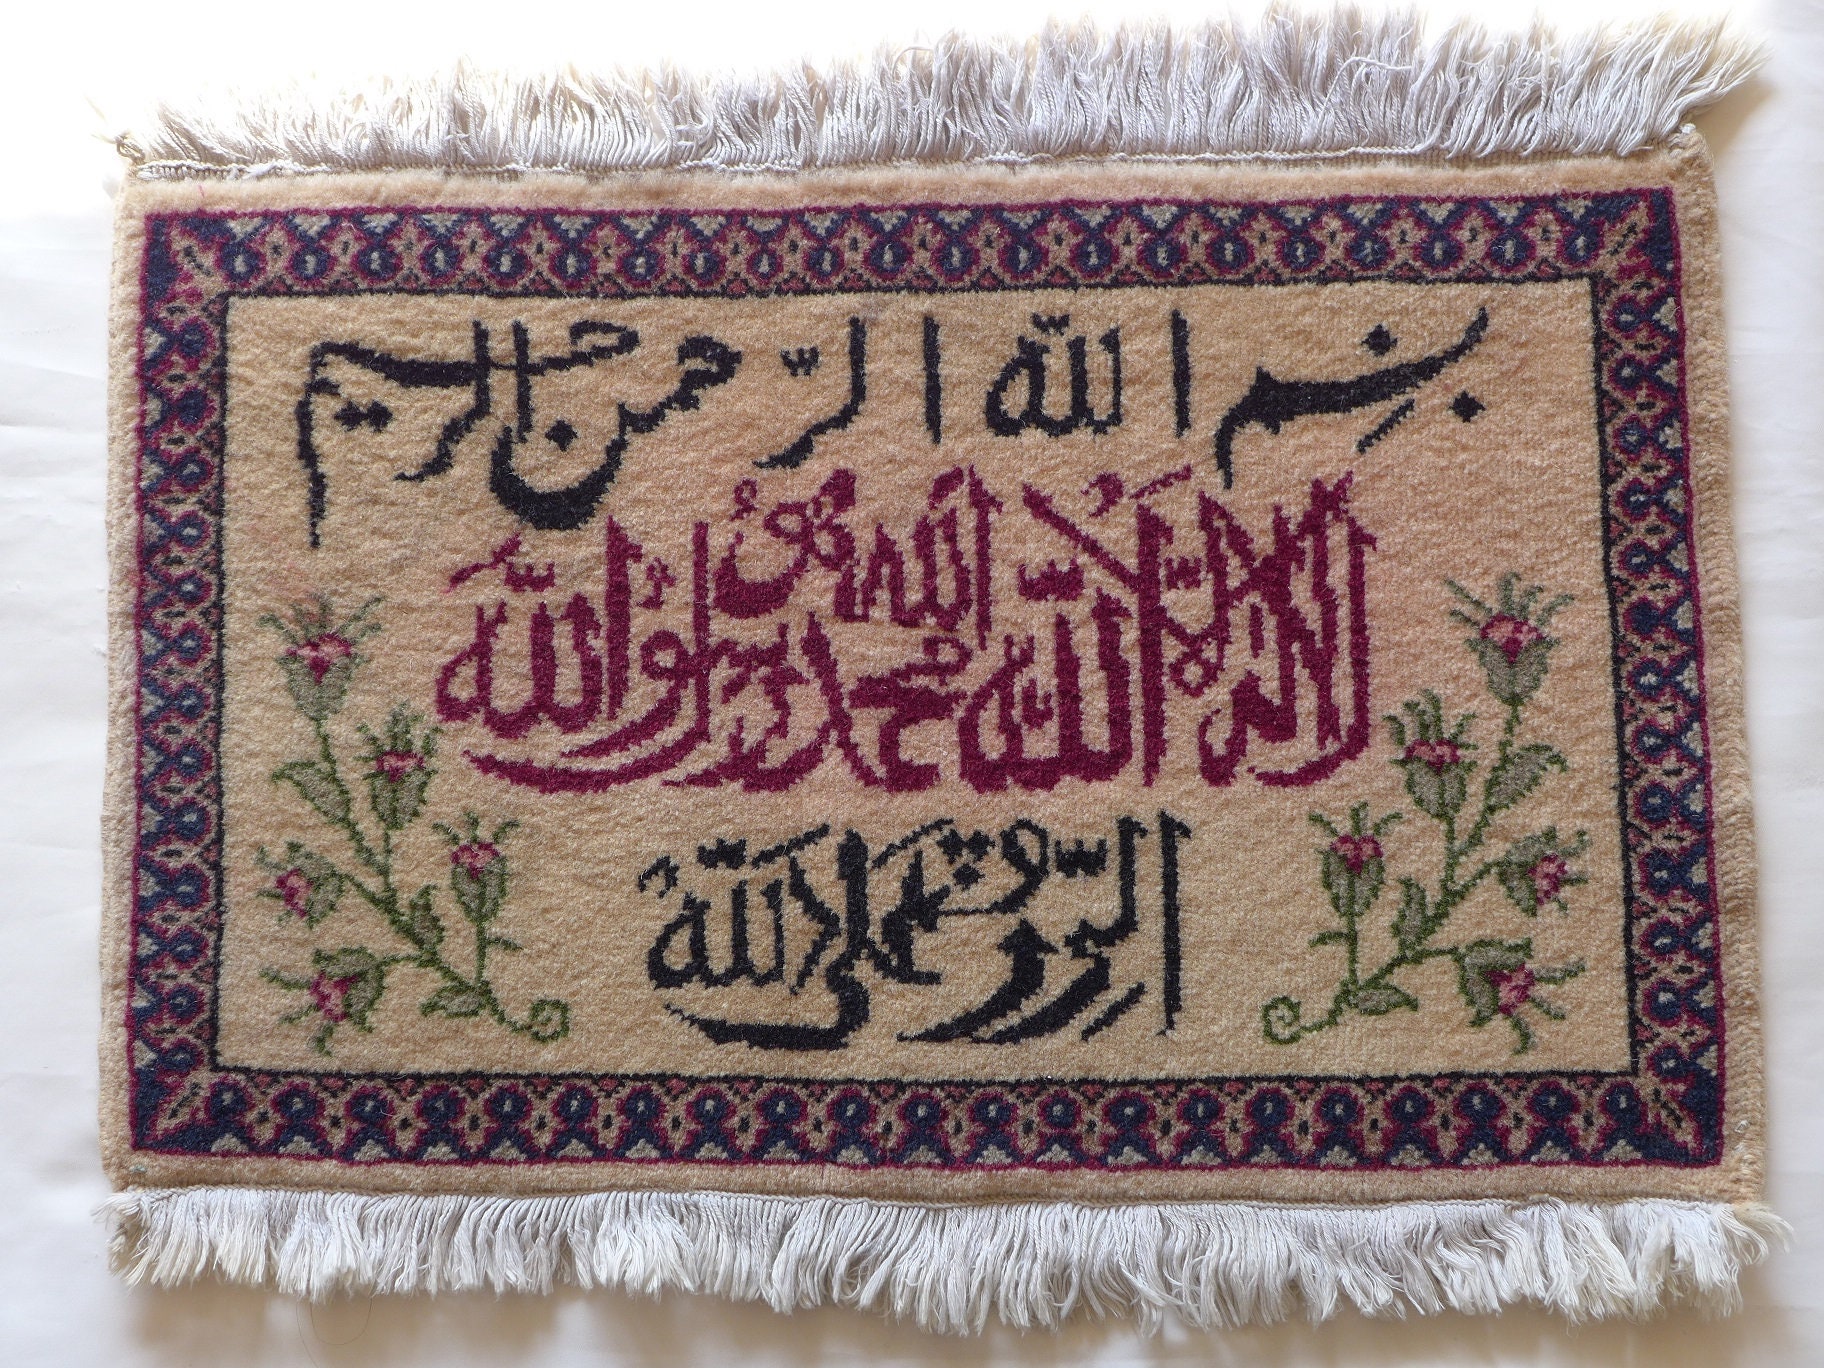 بسم الله الرحمن الرحيم
لا اله الا الله محمد رسول الله
الرزق على الله